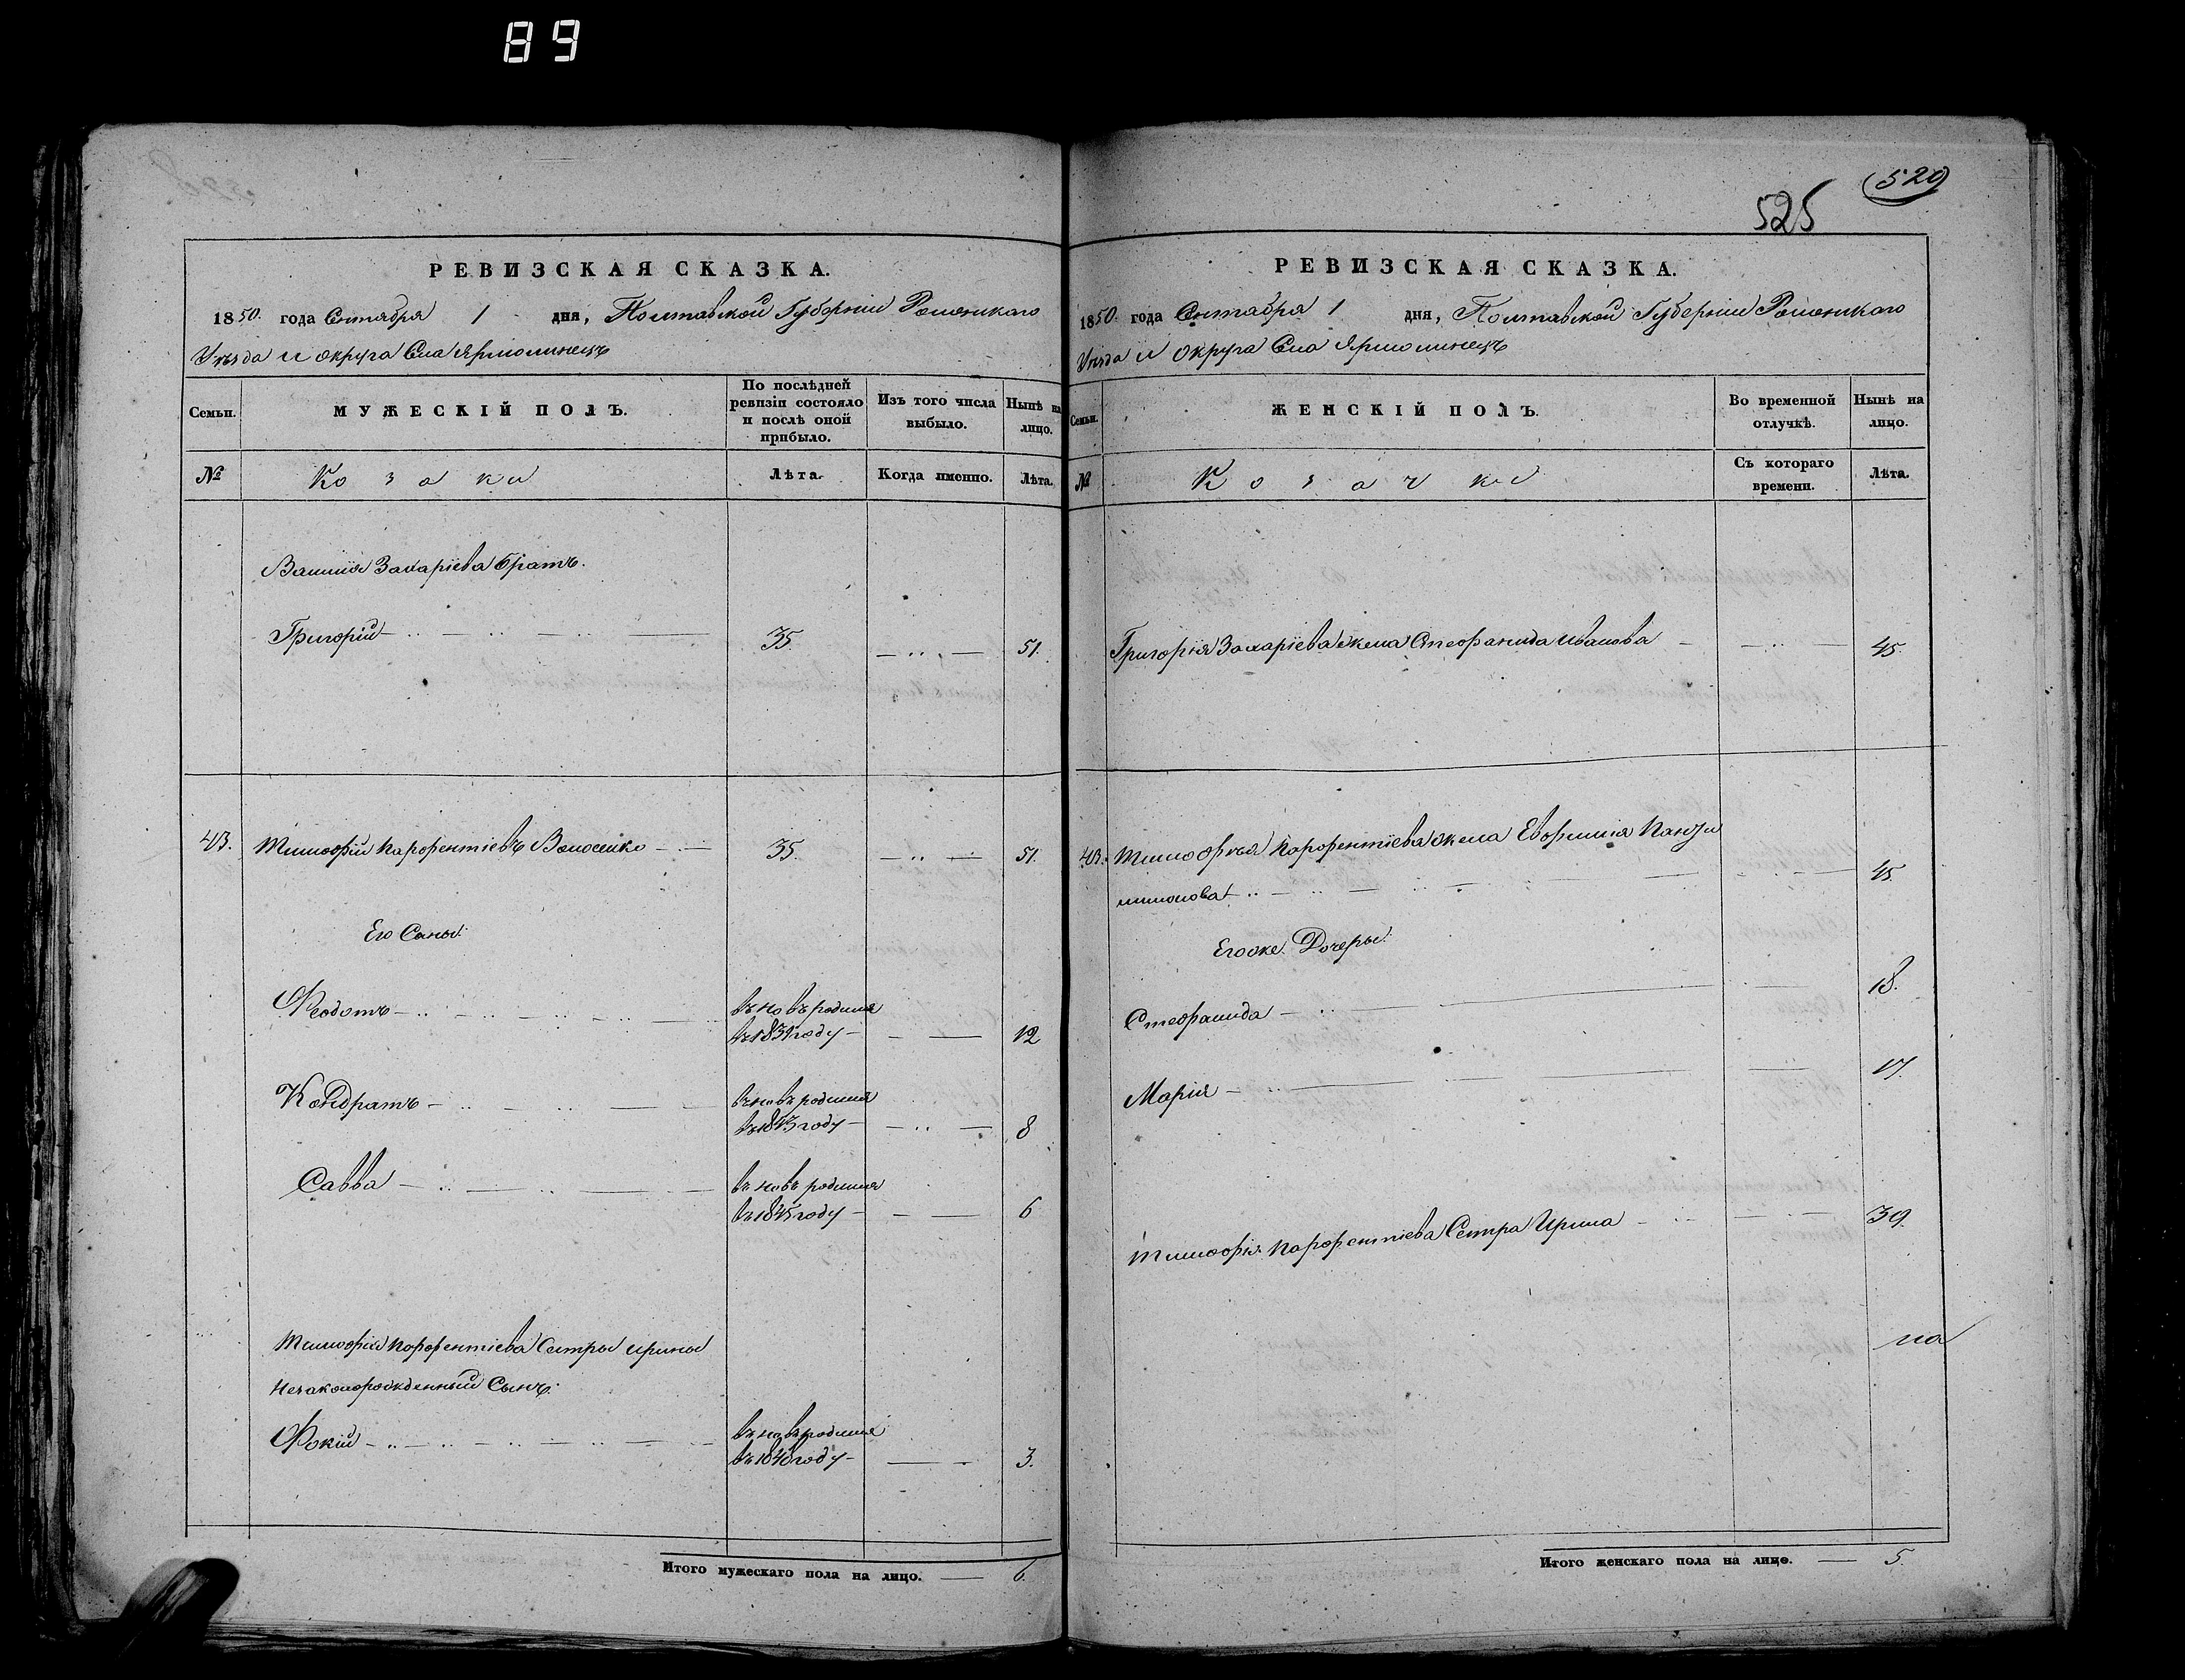 89
РЕВИЗСКАЯ СКАЗКА.
1850. года Сентября 1 дня, Полтавской Губерніи Роменскаго
Уѣзда и округа Села Ярмолинецъ
Семьи.
МУЖЕСКІЙ ПОЛЪ.
По послѣдней ревизіи состояло и послѣ оной прибыло.
Изъ того числа выбыло.
Нынѣ на лицо.
№
Козаки
Лѣта.
Когда именно.
Лѣта.
Захаріева братъ.
Григорій 35. 51.
43. Тимофій Парфентіевъ Волошко 35. 51.
Его Сыны:
Феодотъ
въ новь родился
въ 1839 году 12
Кондратъ
въ новь родился
въ 1843 году 8
Савва
въ новь родился
въ 1845 году 6
Тимофія Парфентіева Сестры Ирины
Незаконорожденный Сынъ:
Фокій
въ новь родился
въ 1848 году 3.
Итого мужескаго пола на лицо. 6.
525
529
РЕВИЗСКАЯ СКАЗКА.
1850. года Сентября 1 дня, Полтавской Губерніи Роменскаго
Уѣзда и округа Села Ярмолинецъ
Семьи.
ЖЕНСКІЙ ПОЛЪ.
Во временной отлучкѣ.
Нынѣ на лицо.
№
Козачки
Съ котораго времени.
Лѣта.
Григорія Захаріева жена Стефанида Иванова 45.
43. Тимофѣя Парфентіева жена Евфимія
45.
Его же Дочеры:
Стефанида 18.
Марія 17.
Тимофія Парфентіева Сестра Ирина 39.
на
Итого женскаго пола на лицо. 5.